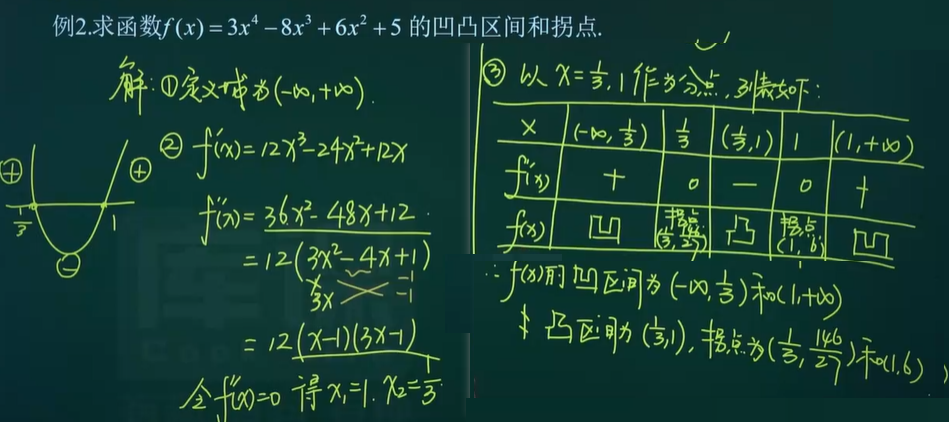 例2.求函数f(x)=3x⁴-8x³+6x²+5 的凹凸区间和拐点.
解:①定义域为(-∞,+∞).
②f'(x)=12x³-24x²+12x
f''(x)=36x²-48x+12.
=12(3x²-4x+1)
x -1
3x -1
=12(x-1)(3x-1)
令f''(x)=0 得x₁=1. x₂=1/3.
+ +
1/3 1
-
③以x=1/3,1作为分点,列表如下:
x (-∞,1/3) 1/3 (1/3,1) 1 (1,+∞)
f''(x) + 0 - 0 +
f(x) 凹 拐点 凸 拐点(1,6) 凹
∴f(x)的凹区间为(-∞,1/3)和(1,+∞)
凸区间为(1/3,1),拐点为(1/3,146/27)和(1,6)